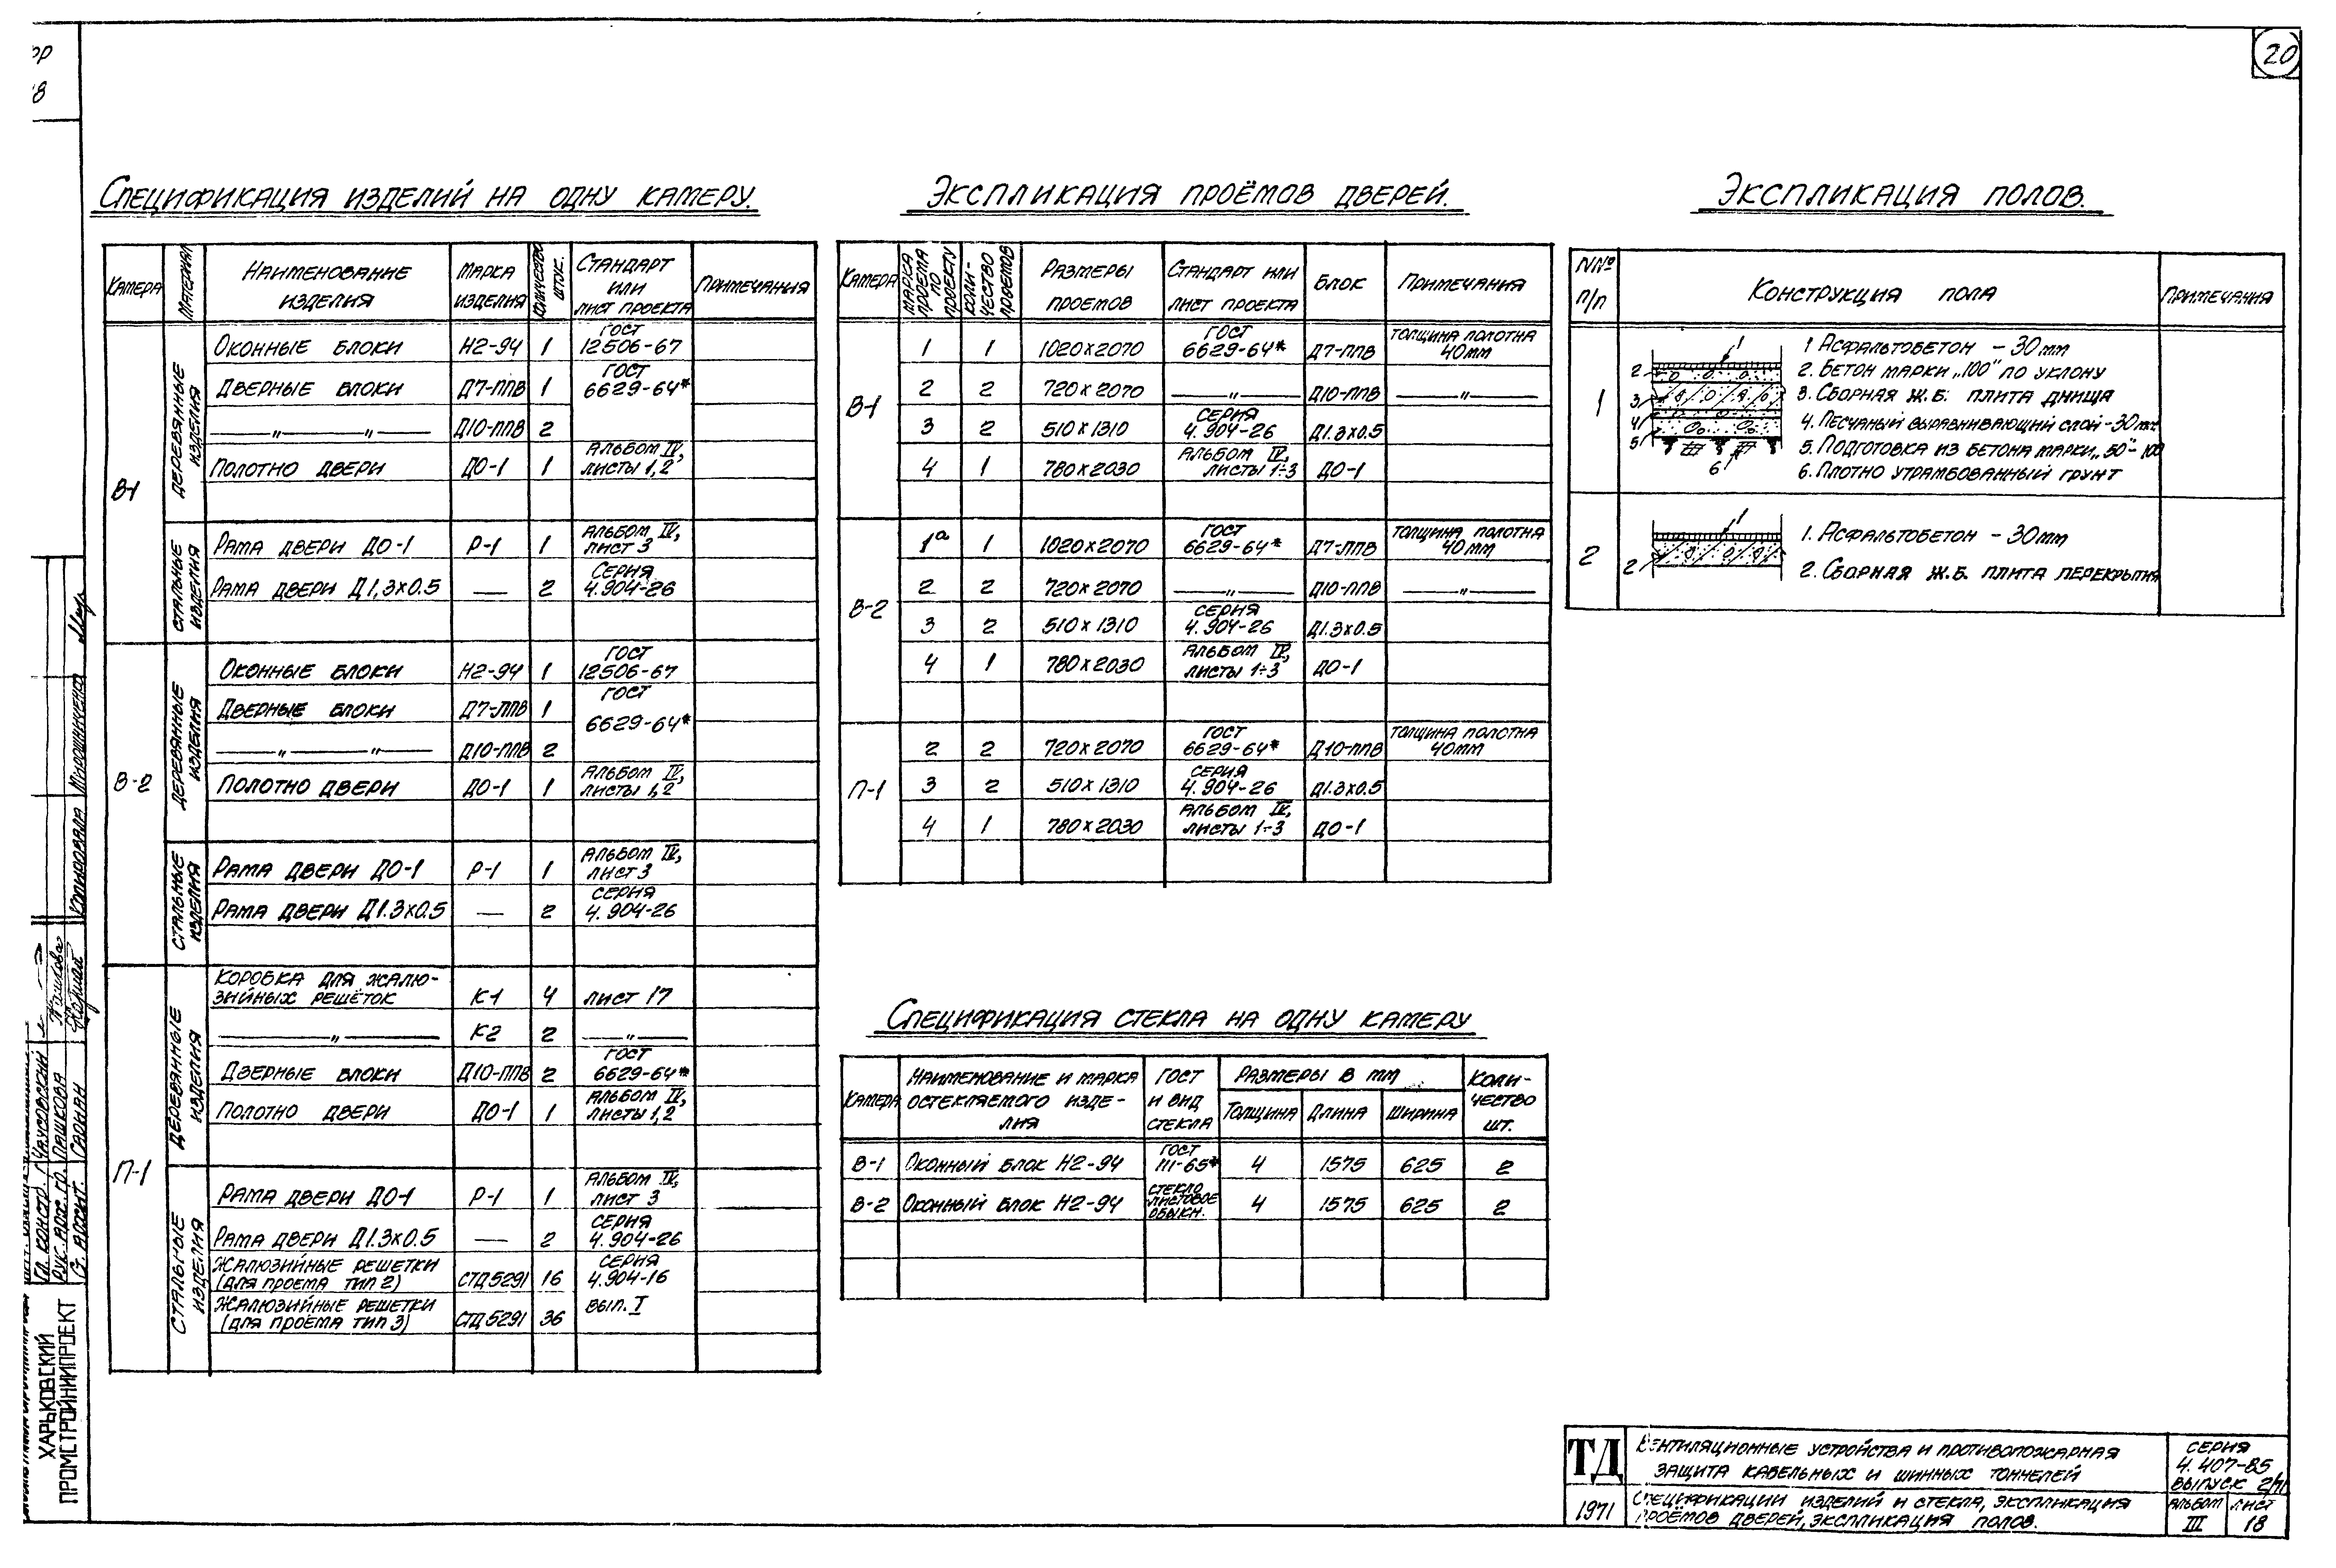 20
18
Спецификация изделий на одну камеру.
Камера Материал Наименование изделия Марка изделия Количество штук. Стандарт или лист проекта Примечания
В-1
Деревянные изделия
Оконные блоки Н2-94 1 ГОСТ 12506-67
Дверные блоки Д7-ППВ 1 ГОСТ 6629-64*
—„— —„— Д10-ППВ 2
Полотно двери ДО-1 1 Альбом IV, листы 1,2
Стальные изделия
Рама двери ДО-1 Р-1 1 Альбом IV, лист 3
Рама двери Д1,3х0.5 — 2 Серия 4.904-26
В-2
Деревянные изделия
Оконные блоки Н2-94 1 ГОСТ 12506-67
Дверные блоки Д7-ППВ 1 ГОСТ 6629-64*
—„— —„— Д10-ППВ 2
Полотно двери ДО-1 1 Альбом IV, листы 1,2
Стальные изделия
Рама двери ДО-1 Р-1 1 Альбом IV, лист 3
Рама двери Д1.3х0.5 — 2 Серия 4.904-26
П-1
Деревянные изделия
Коробка для жалю-
зийных решёток К-1 4 лист 17
—„— К2 2 —„—
Дверные блоки Д10-ППВ 2 ГОСТ 6629-64*
Полотно двери ДО-1 1 Альбом IV, листы 1,2
Стальные изделия
Рама двери ДО-1 Р-1 1 Альбом IV, лист 3
Рама двери Д1.3х0.5 — 2 Серия 4.904-26
Жалюзийные решетки
(для проема тип 2) СТД5291 16 Серия 4.904-16
Жалюзийные решетки
(для проема тип 3) СТД5291 36 вып. I
Экспликация проёмов дверей.
Камера Марка проема по проекту Коли-чество проемов Размеры проемов Стандарт или лист проекта Блок Примечания
В-1
1 1 1020х2070 ГОСТ 6629-64* Д7-ППВ Толщина полотна 40мм
2 2 720х2070 —„— Д10-ППВ —„—
3 2 510х1310 Серия 4.904-26 Д1.3х0.5
4 1 780х2030 Альбом IV, листы 1÷3 ДО-1
В-2
1а 1 1020х2070 ГОСТ 6629-64* Д7-ППВ Толщина полотна 40мм
2 2 720х2070 —„— Д10-ППВ —„—
3 2 510х1310 Серия 4.904-26 Д1.3х0.5
4 1 780х2030 Альбом IV, листы 1÷3 ДО-1
П-1
2 2 720х2070 ГОСТ 6629-64* Д10-ППВ Толщина полотна 40мм
3 2 510х1310 Серия 4.904-26 Д1.3х0.5
4 1 780х2030 Альбом IV, листы 1÷3 ДО-1
Спецификация стекла на одну камеру
Камера Наименование и марка остекляемого изде-лия ГОСТ и вид стекла Размеры в мм Коли-чество шт.
Толщина Длина Ширина
В-1 Оконный блок Н2-94 ГОСТ 111-65* 4 1575 625 2
В-2 Оконный блок Н2-94 стекло листовое обыкн. 4 1575 625 2
Экспликация полов.
NNº п/п Конструкция пола Примечания
1
1 2 3 4 5 6
1 Асфальтобетон – 30мм
2. Бетон марки „100" по уклону
3. Сборная ж.б. плита днища
4. Песчаный выравнивающий слой-30мм
5. Подготовка из бетона марки „50"-100
6. Плотно утрамбованный грунт
2
1 2
1. Асфальтобетон – 30мм
2. Сборная ж.б. плита перекрытия
ТД
1971
Вентиляционные устройства и противопожарная
защита кабельных и шинных тоннелей
Спецификации изделий и стекла, экспликация
проёмов дверей, экспликация полов.
Серия
4.407-85
Выпуск 2/71
Альбом III
Лист 18
Харьковский
Промстройниипроект
Гл. констр. Чаховский
Рук. арх. гр. Пашкова
Ст. архит. Саонан
Копировала Мирошниченко